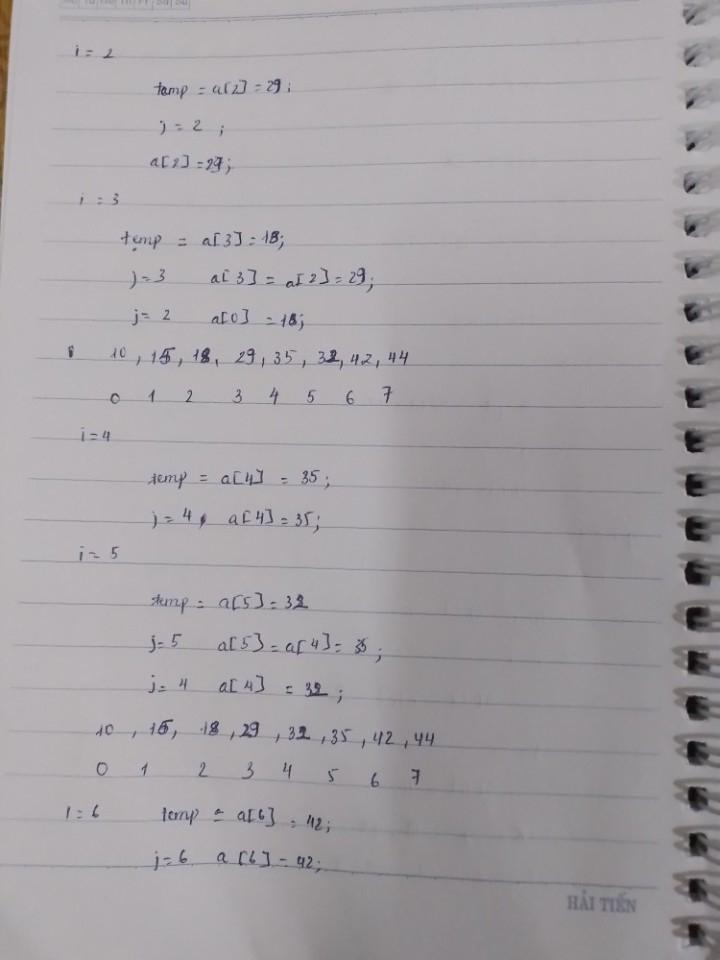 i = 2
temp = a[2] = 29;
j = 2 ;
a[2] = 29;
i = 3
temp = a[3] = 18;
j = 3 a[3] = a[2] = 29;
j = 2 a[0] = 18;
10 , 15, 18, 29, 35, 32, 42, 44
0 1 2 3 4 5 6 7
i = 4
temp = a[4] = 35;
j = 4, a[4] = 35;
i = 5
temp = a[5] = 32
j = 5 a[5] = a[4] = 35;
j = 4 a[4] = 32;
10 , 15, 18, 29, 32, 35, 42, 44
0 1 2 3 4 5 6 7
i = 6 temp = a[6] = 42;
j = 6 a[6] = 42;
HẢI TIẾN